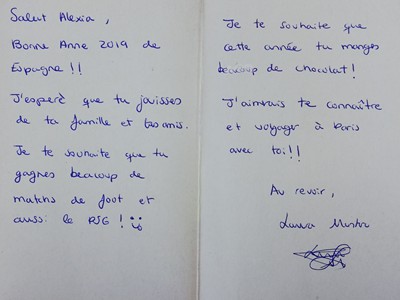 Salut Alexia,
Bonne Anne 2019 de
Espagne!!
J'esperè que tu jouisses
de ta famille et tes amis.
Je te souhaite que tu
gagnes beaucoup de
matchs de foot et
aussi le
Je te souhaite que
cette année tu manges
beaucoup de chocolat!
J'aimrais te connaître
et voyager à Paris
avec toi!!
Au revoir,
Laura